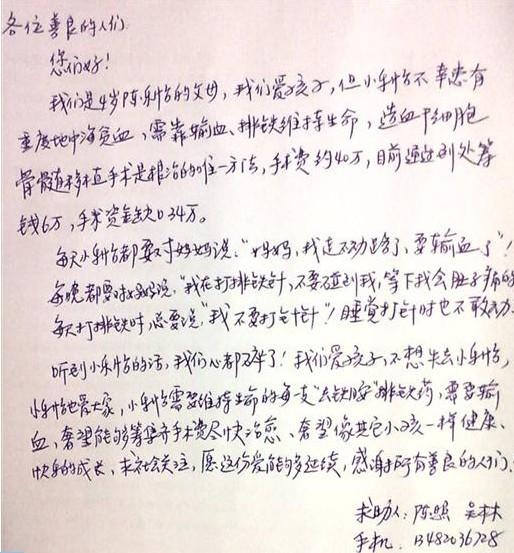 各位善良的人们
您们好!
我们是4岁陈乐怡的父母,我们爱孩子,但小乐怡不幸患有
重度地中海贫血,需靠输血、排铁维持生命,造血干细胞
骨髓移植手术是根治的唯一方法,手术费约40万,目前通过到处筹
钱6万,手术资金缺口34万。
每天小乐怡都要对妈妈说,“妈妈,我走不动路了,要输血了”!
每晚都要对妈妈说,“我在打排铁针,不要碰到我,等下我会肚子痛的
每天打排铁时,总要说“我不要打针针”!睡觉打针时也不敢动.
听到小乐怡的话,我们心都碎了!我们爱孩子,不想失去小乐怡,
小乐怡也爱大家,小乐怡需要维持生命的每支“去铁胺”排铁药,需要输
血,奢望能够筹集齐手术费尽快治愈、奢望像其它小孩一样健康、
快乐的成长,求社会关注,愿这份爱能够延续,感谢所有善良的人们.
求助人:陈照 吴林
手机. 13482036728